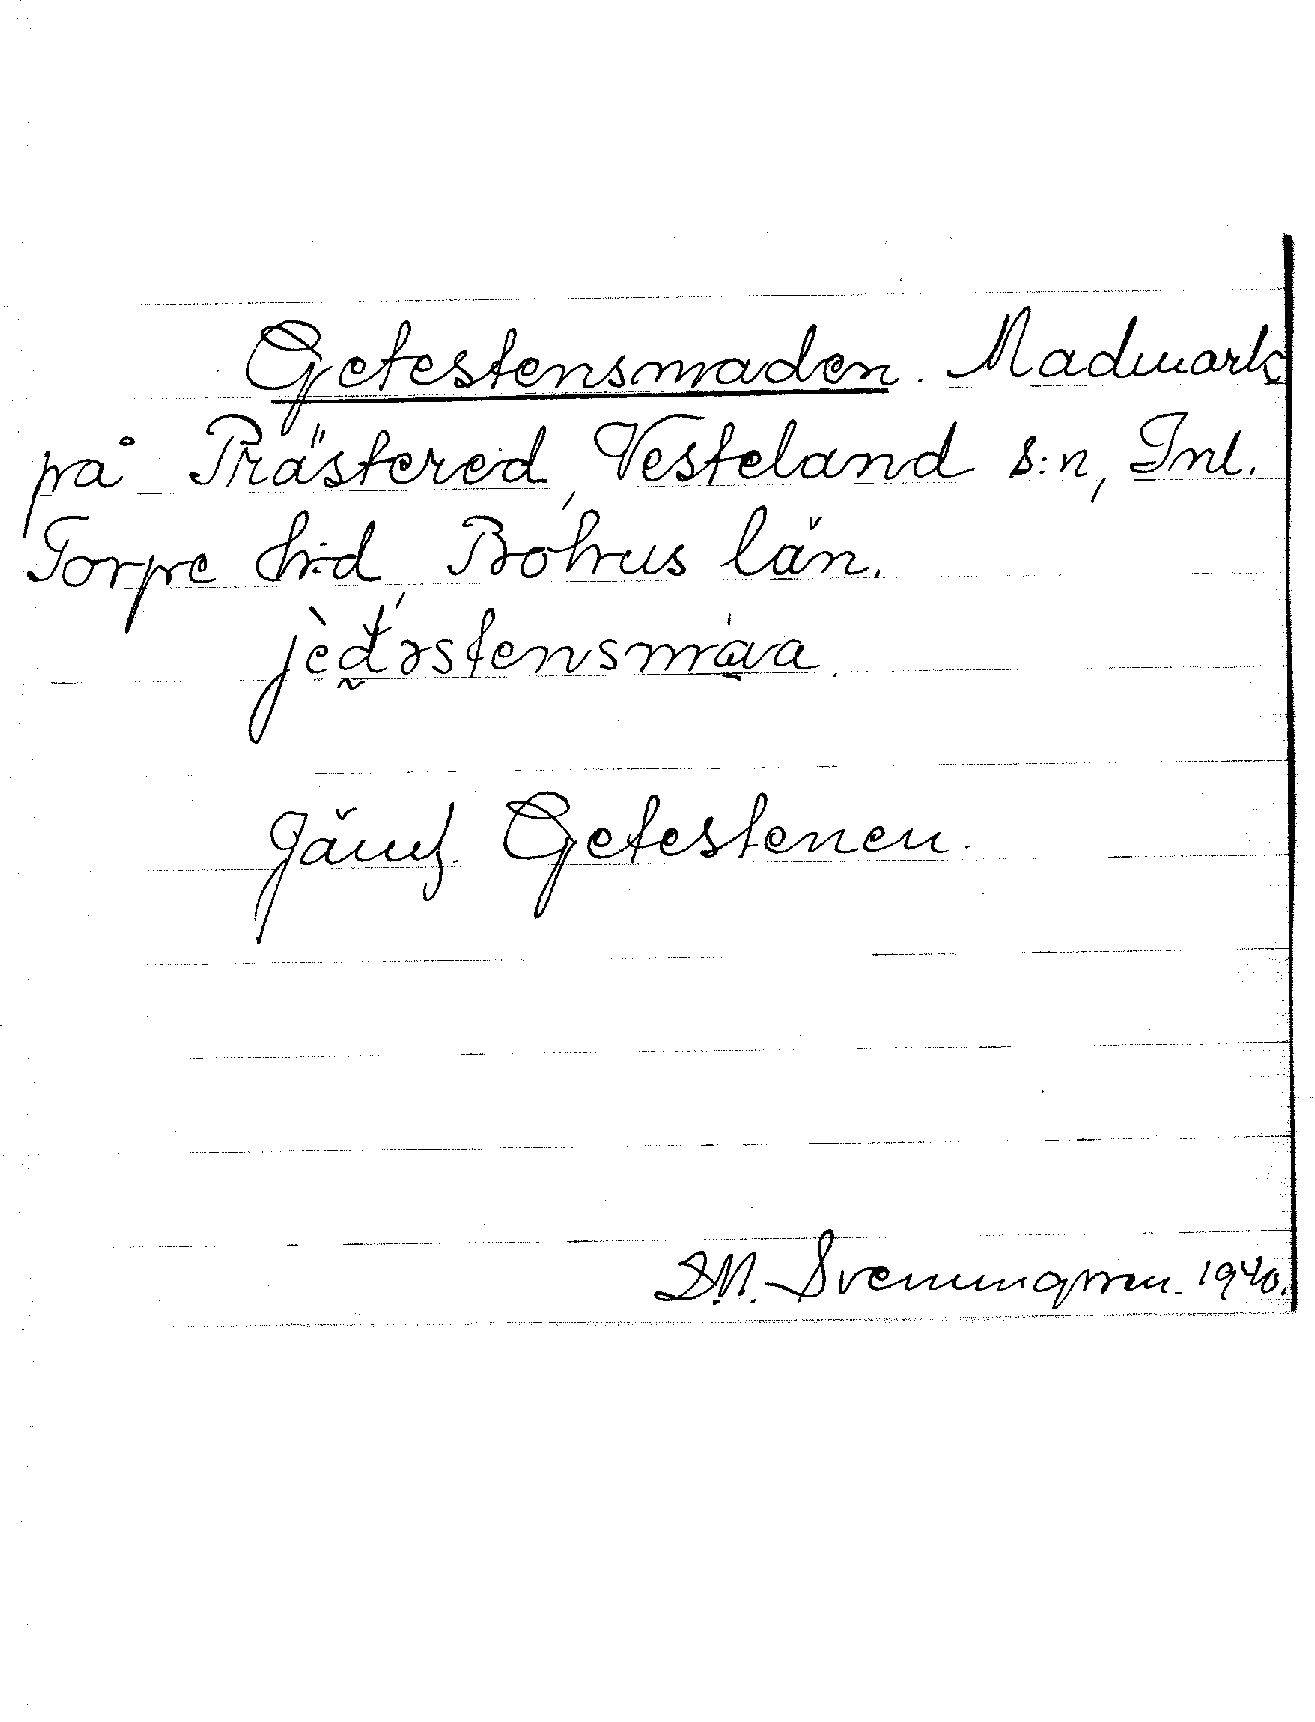 Getestensmaden. Madmark
på Prästered, Vesteland s:n, Inl.
Torpe h:d, Bohus län.
jèđəstensmáa.
Jämf. Getestenen.
S.N. Svenungsson. 1940.